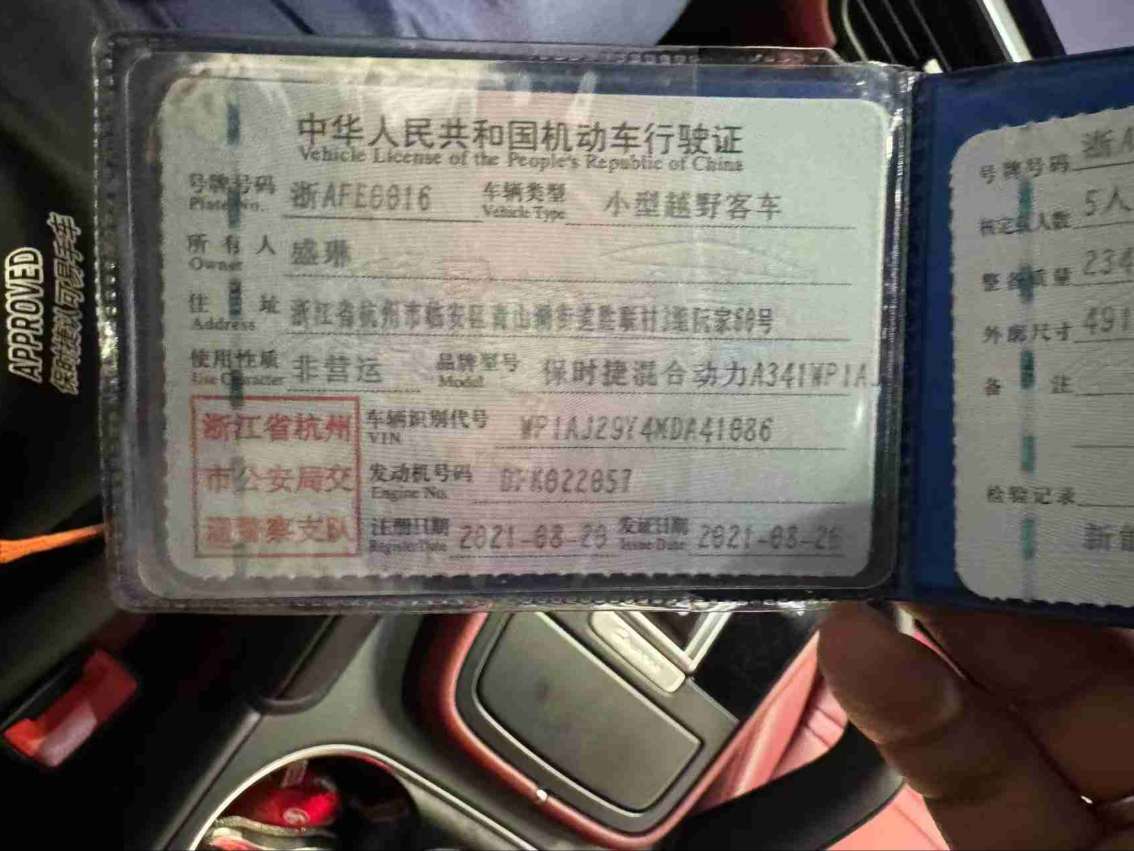 中华人民共和国机动车行驶证
Vehicle License of the People's Republic of China
号牌号码 浙AFE0016 车辆类型 小型越野客车
Plate No. Vehicle Type
所有人 盛琳
Owner
住址 浙江省杭州市临安区青山湖街道胜联村3组阮家60号
Address
使用性质 非营运 品牌型号 保时捷混合动力A341WP1AJ
Use Character Model
浙江省杭州
市公安局交
通警察支队
车辆识别代号 WP1AJ29Y4MDA41086
VIN
发动机号码 022057
Engine No.
注册日期 2021-08-20 发证日期 2021-08-20
Register Date Issue Date
号牌号码 浙A
核定载人数 5人
整备质量 234
外廓尺寸 491
备注
检验记录
新能
APPROVED
保时捷认可易手车